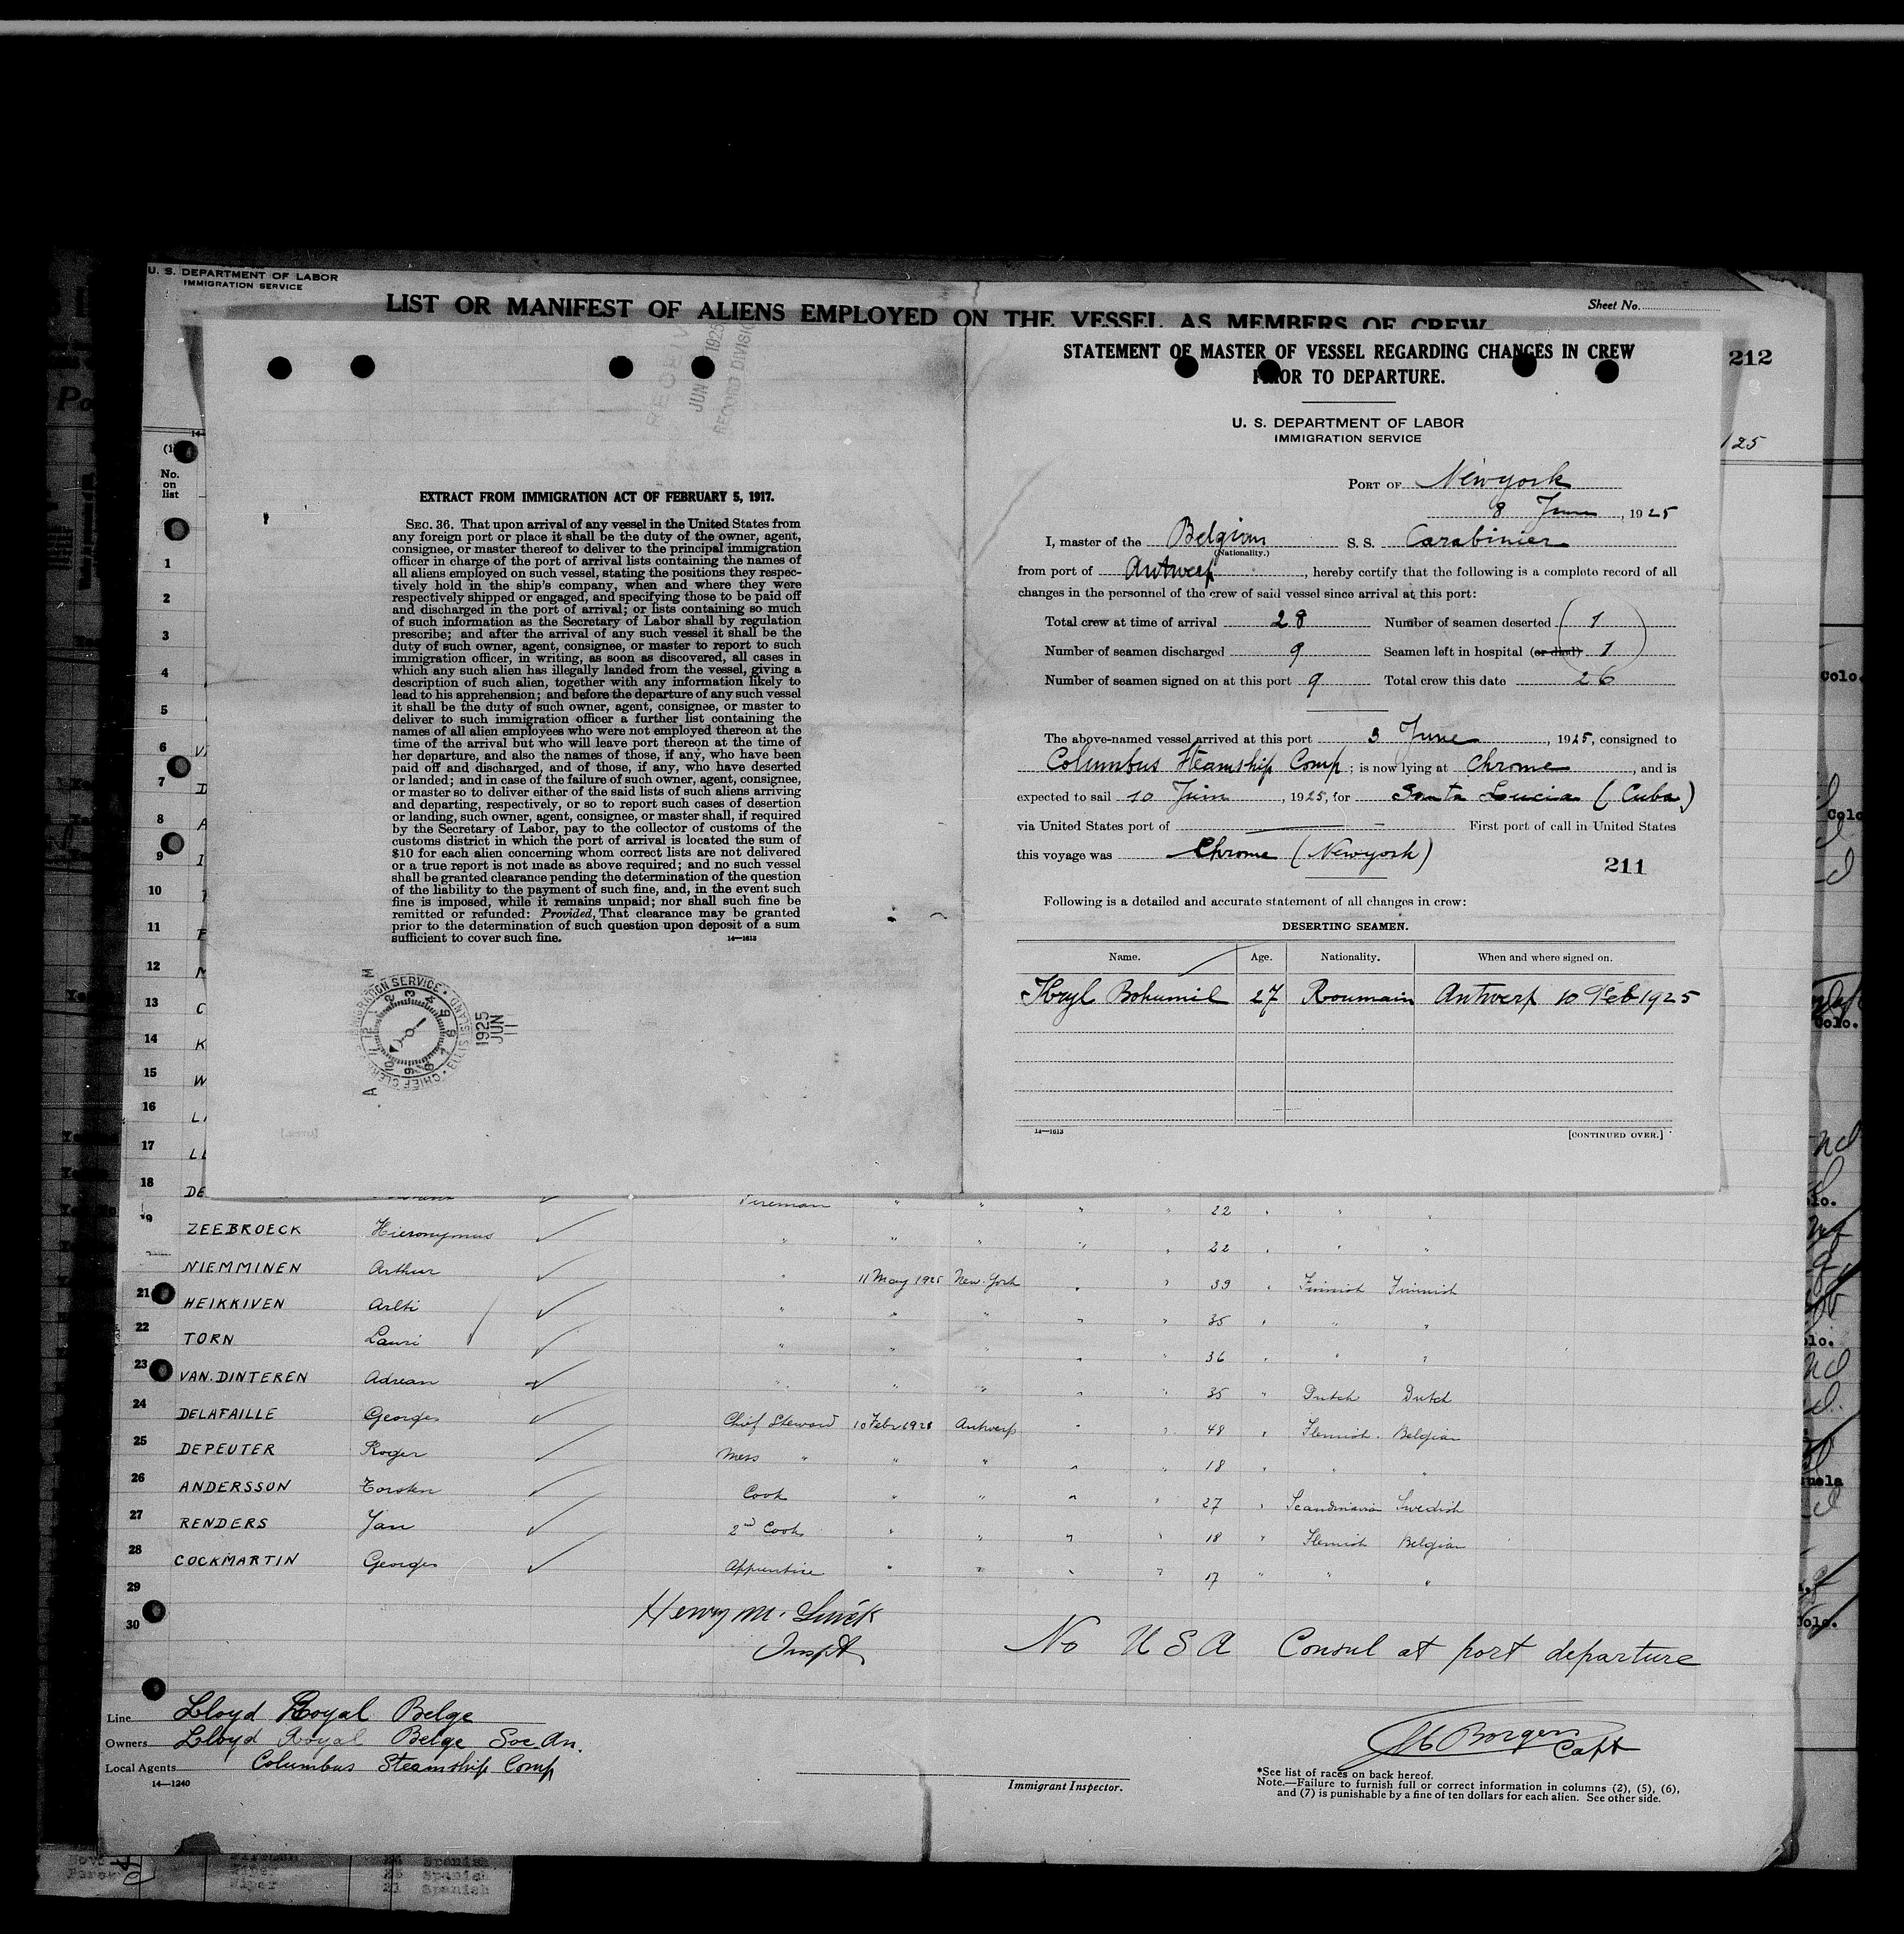 U. S. DEPARTMENT OF LABOR
IMMIGRATION SERVICE
LIST OR MANIFEST OF ALIENS EMPLOYED ON THE VESSEL AS MEMBERS OF CREW
Sheet No.
212
125
JUN 1925
RECORD DIVISION
EXTRACT FROM IMMIGRATION ACT OF FEBRUARY 5, 1917.
SEC. 36. That upon arrival of any vessel in the United States from
any foreign port or place it shall be the duty of the owner, agent,
consignee, or master thereof to deliver to the principal immigration
officer in charge of the port of arrival lists containing the names of
all aliens employed on such vessel, stating the positions they respec-
tively hold in the ship's company, when and where they were
respectively shipped or engaged, and specifying those to be paid off
and discharged in the port of arrival; or lists containing so much
of such information as the Secretary of Labor shall by regulation
prescribe; and after the arrival of any such vessel it shall be the
duty of such owner, agent, consignee, or master to report to such
immigration officer, in writing, as soon as discovered, all cases in
which any such alien has illegally landed from the vessel, giving a
description of such alien, together with any information likely to
lead to his apprehension; and before the departure of any such vessel
it shall be the duty of such owner, agent, consignee, or master to
deliver to such immigration officer a further list containing the
names of all alien employees who were not employed thereon at the
time of the arrival but who will leave port thereon at the time of
her departure, and also the names of those, if any, who have been
paid off and discharged, and of those, if any, who have deserted
or landed; and in case of the failure of such owner, agent, consignee,
or master so to deliver either of the said lists of such aliens arriving
and departing, respectively, or so to report such cases of desertion
or landing, such owner, agent, consignee, or master shall, if required
by the Secretary of Labor, pay to the collector of customs of the
customs district in which the port of arrival is located the sum of
$10 for each alien concerning whom correct lists are not delivered
or a true report is not made as above required; and no such vessel
shall be granted clearance pending the determination of the question
of the liability to the payment of such fine, and, in the event such
fine is imposed, while it remains unpaid; nor shall such fine be
remitted or refunded: Provided, That clearance may be granted
prior to the determination of such question upon deposit of a sum
sufficient to cover such fine.
14—1613
1925 JUN 11
STATEMENT OF MASTER OF VESSEL REGARDING CHANGES IN CREW
PRIOR TO DEPARTURE.
U. S. DEPARTMENT OF LABOR
IMMIGRATION SERVICE
PORT OF Newyork
8 June, 1925
I, master of the Belgium S. S. Carabinier
(Nationality.)
from port of Antwerp, hereby certify that the following is a complete record of all
changes in the personnel of the crew of said vessel since arrival at this port:
Total crew at time of arrival 28 Number of seamen deserted 1
Number of seamen discharged 9 Seamen left in hospital (or died) 1
Number of seamen signed on at this port 9 Total crew this date 26
The above-named vessel arrived at this port 3 June, 1925, consigned to
Columbus Steamship Comp; is now lying at Chrome, and is
expected to sail 10 Juin, 1925, for Santa Lucia (Cuba)
via United States port of First port of call in United States
this voyage was Chrome (Newyork)
211
Following is a detailed and accurate statement of all changes in crew:
DESERTING SEAMEN.
Name. Age. Nationality. When and where signed on.
Kryl Bohumil 27 Roumain Antwerp 10 Feb 1925
14—1613 [CONTINUED OVER.]
No. on list
1
2
3
4
5
6
7
8
9
10
11
12
13
14
15
16
17
18 DE Fireman " " " " 22 " " "
19 ZEEBROECK Hieronymus " " " " " 22 " " "
NIEMMINEN Arthur " 11 May 1925 New-York " " 39 " Finnish Finnish
21 HEIKKIVEN Arlti " " " " " 35 " " "
22 TORN Lauri " " " " " 36 " " "
23 VAN. DINTEREN Adrean " " " " " 35 " Dutch Dutch
24 DELAFAILLE Georges Chief Steward 10 Febr 1925 Antwerp " " 48 " Flemish Belgian
25 DEPEUTER Roger Mess " " " " " 18 " " "
26 ANDERSSON Torsten Cook " " " " 27 " Scandinavian Swedish
27 RENDERS Jan 2nd Cook " " " " 18 " Flemish Belgian
28 COCKMARTIN Georges Apprentice " " " " 17 " " "
29
30
Henry M.
Inspt
No USA Consul at port departure
Line Lloyd Royal Belge
Owners Lloyd Royal Belge Soc An.
Local Agents Columbus Steamship Comp
14—1240
Borgers Capt
Immigrant Inspector.
*See list of races on back hereof.
Note.—Failure to furnish full or correct information in columns (2), (5), (6),
and (7) is punishable by a fine of ten dollars for each alien. See other side.
Spanish
Spanish
Wiper 21 Spanish